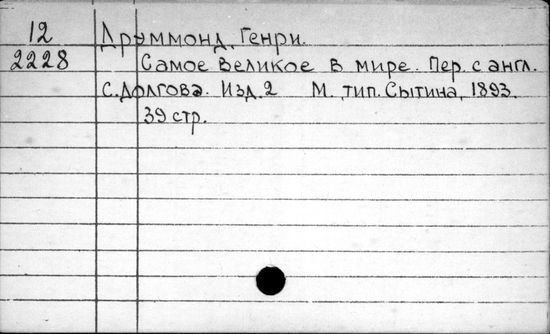 12 Друммонд, Генри.
2228 Самое великое в мире. Пер. с англ.
С. Долгова. Изд. 2 М., тип. Сытина, 1893.
39 стр.